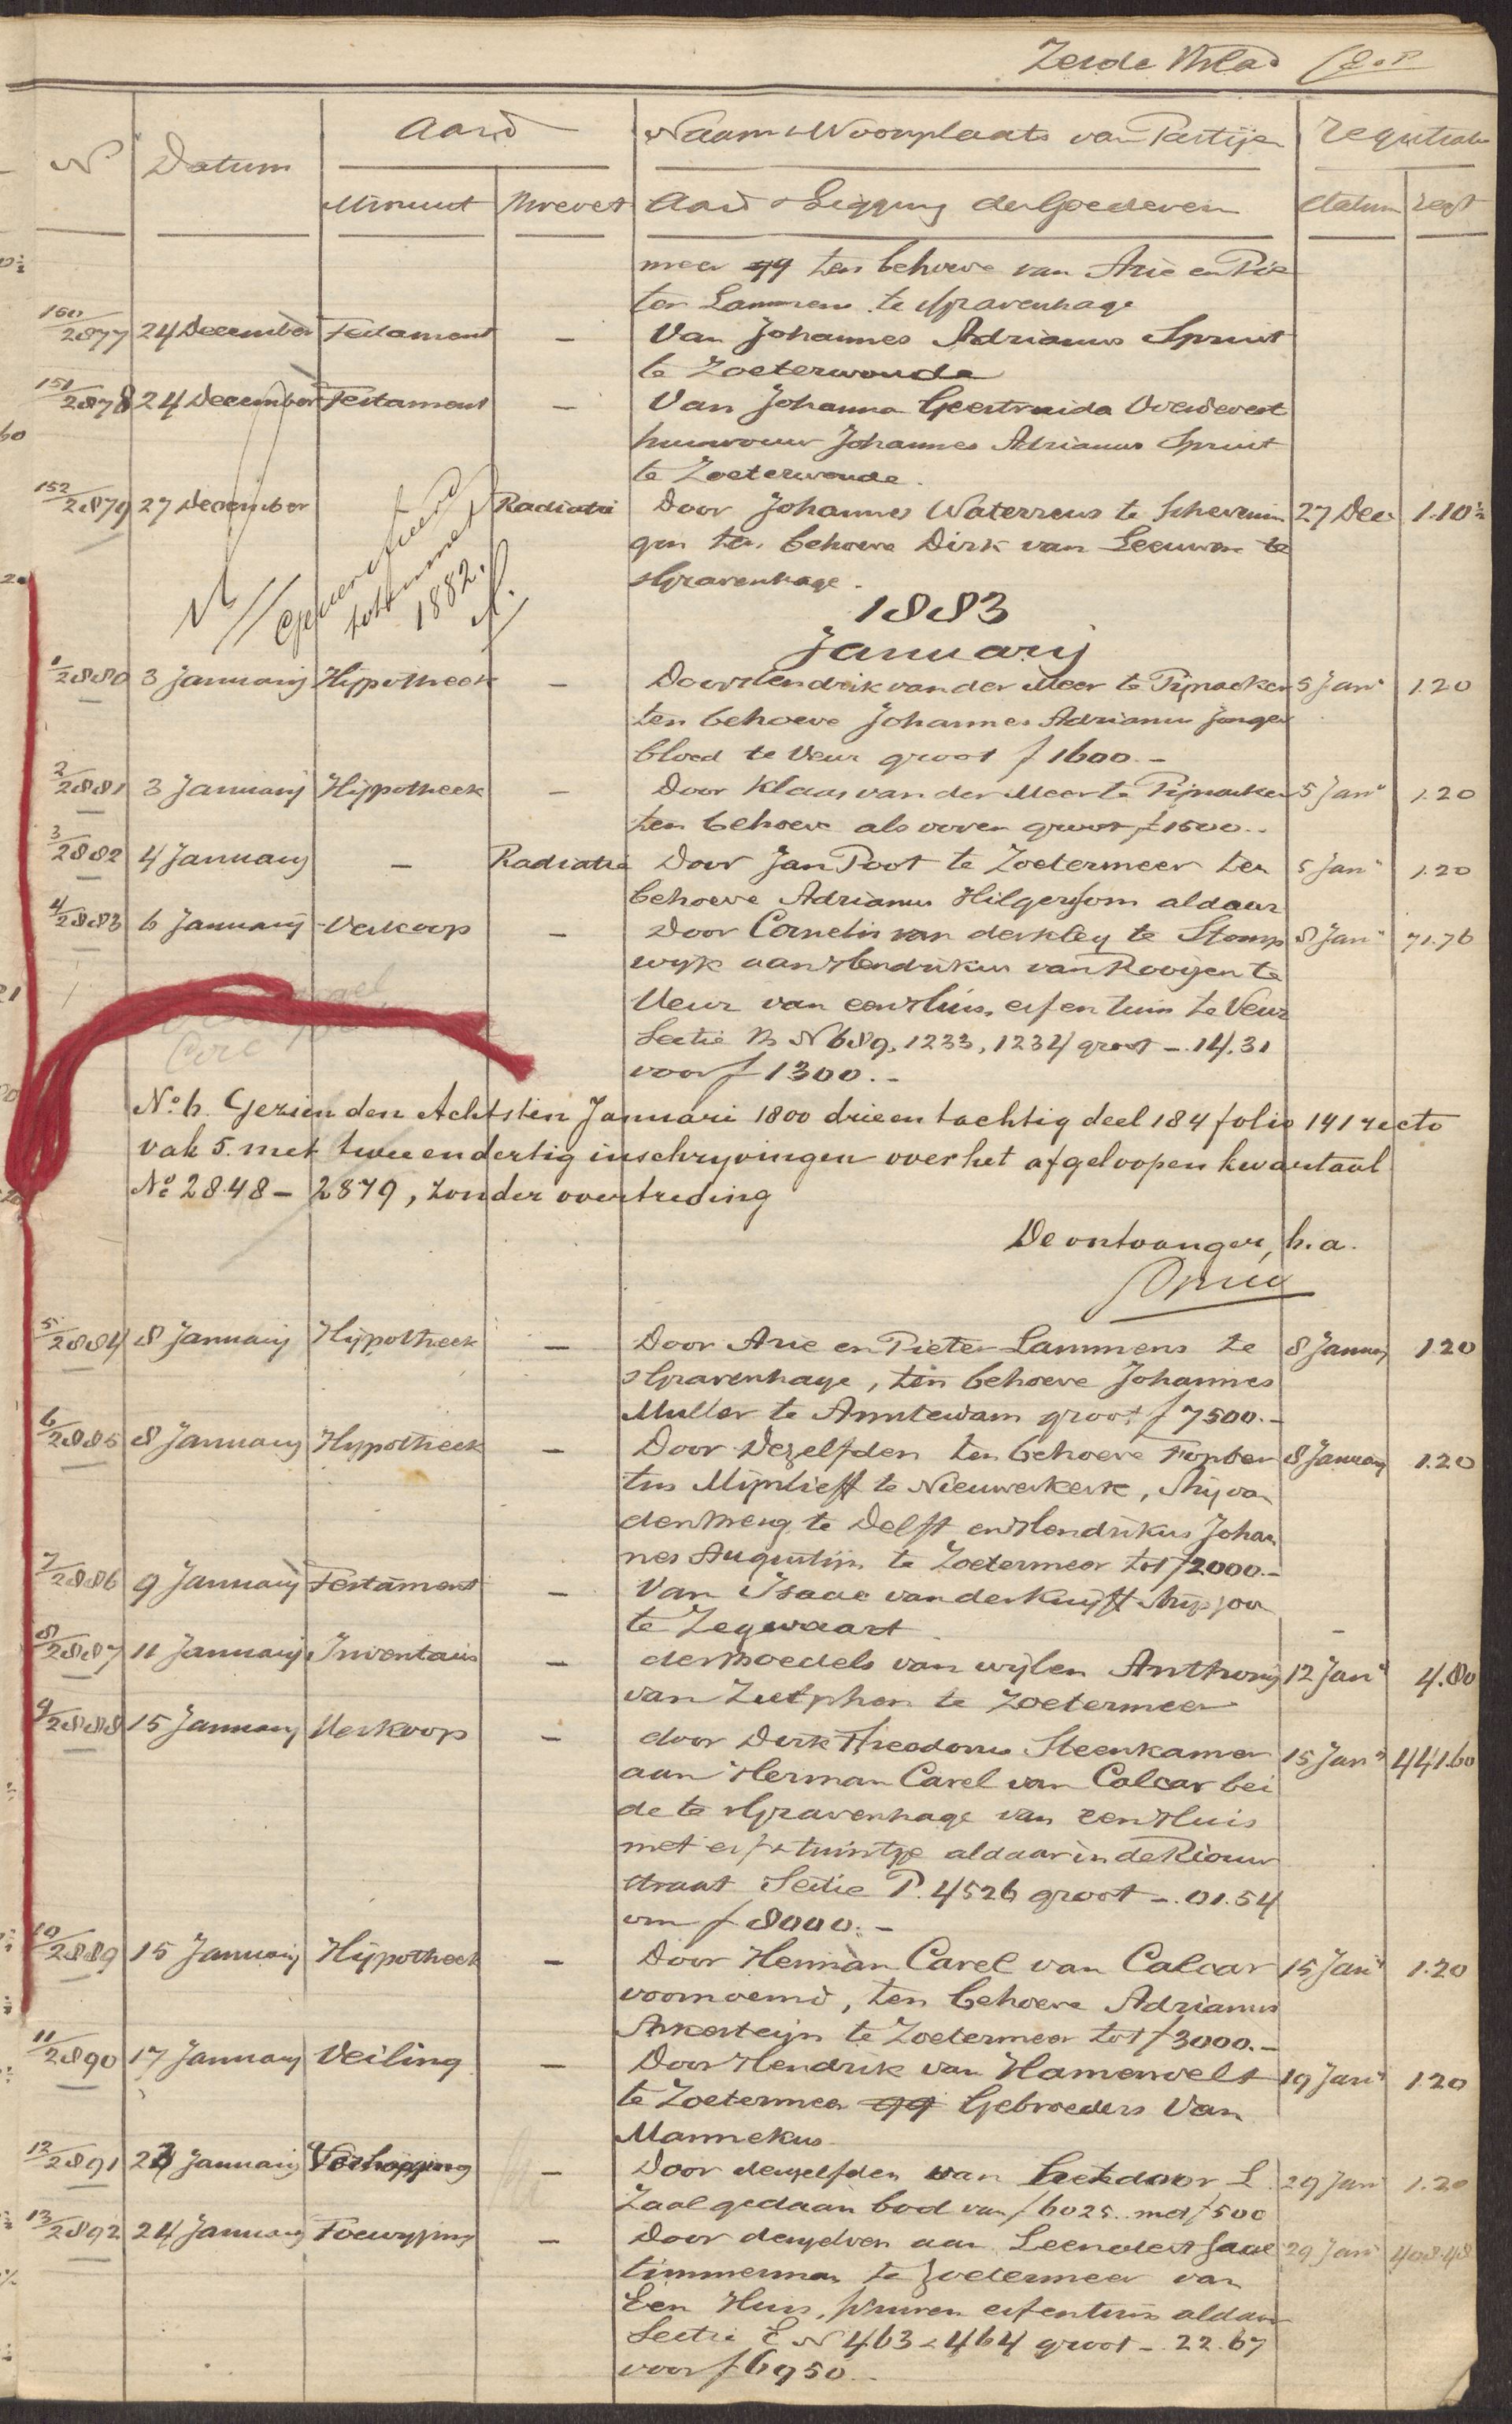 Zesde Blad
N Datum Aard Naam & Woonplaats van Partijen registratie
Minuut Brevet Aard & Ligging der Goederen datum regt
meer qq ten behoeve van Arie en Pie
ter Lammens te sGravenhage
150/2877 24 December Testament — Van Johannes Adrianus Spruit
te Zoeterwoude
151/2878 24 December Testament — Van Johanna Geertruida Overdevest
huisvrouw Johannes Adrianus Spruit
te Zoeterwoude.
152/2879 27 December Radiatie Door Johannes Waterreus te Schevenin 27 Dec 1.10½
gen ten behoeve Dirk van Leeuwen te
sGravenhage.
Geverifieerd
tot en met
1882.
1883
Januarij
1/2880 3 Januarij Hypotheek — Door Hendrik van der Meer te Pijnacker 5 Jani 1.20
ten behoeve Johannes Adrianus Jonge
bloed te Veur groot f 1600.-
2/2881 3 Januarij Hypotheek — Door Klaas van der Meer te Pijnacker 5 Jani 1.20
ten behoeve als voren groot f 1500.-
3/2882 4 Januarij — Radiatie Door Jan Poot te Zoetermeer ten 5 Jani 1.20
behoeve Adrianus Hilgersom aldaar
4/2883 6 Januarij Verkoop — Door Cornelis van der Kley te Stomp 8 Jani 71.76
wijk aan Hendrikus van Rooijen te
Veur van een Huis, erf en tuin te Veur
Sectie B N 689, 1233, 1234 groot -. 14.31
voor f 1300.-
No. h. Gezien den Achtsten Januari 1800 drieentachtig deel 184 folio 141 recto
vak 5. met twee en dertig inschryvingen over het afgeloopen kwartaal
No 2848 - 2879, zonder overtreding
De ontvanger, h.a.
5/2884 8 Januarij Hypotheek — Door Arie en Pieter Lammens te 8 Januarij 1.20
sGravenhage, ten behoeve Johannes
Muller te Amsterdam groot f 7500.-
6/2885 8 Januarij Hypotheek — Door Dezelfden ten behoeve Fopber 8 Januarij 1.20
tus Mijnlieff te Nieuwerkerk, Thijs van
den Breug te Delft en Hendrikus Johan
nes Augustijn te Zoetermeer tot f 2000.-
7/2886 9 Januarij Testament — Van Isaac van der Kuijft
te Zegwaart. -
8/2887 11 Januarij Inventaris — der Boedels van wijlen Anthonij 12 Jani 4.80
van Zutphen te Zoetermeer
9/2888 15 Januarij Verkoop — door Dirk Theodorus Steenkamer 15 Jani 441.60
aan Herman Carel van Calcar bei
de te sGravenhage van een Huis
met erf & tuintje aldaar in de Riouw
straat Sectie P. 4526 groot -. 01.54
om f 8000.-
10/2889 15 Januarij Hypotheek — Door Herman Carel van Calcar 15 Jani 1.20
voornoemd, ten behoeve Adrianus
Ankersteijn te Zoetermeer tot f 3000.-
11/2890 17 Januarij Veiling — Door Hendrik van Hamerveld 19 Jani 1.20
te Zoetermeer qq Gebroeders Van
Mannekus
12/2891 23 Januarij Verhooging — Door denzelfden van het door L. 29 Jani 1.20
Zaal gedaan bod van f 6025.. met f 500
13/2892 24 Januarij Toewyzing — Door denzelven aan Leendert Zaal 29 Jani 408.48
timmerman te Zoetermeer van
Een Huis, schuren erf en tuin aldaar
Sectie E N 463 & 464 groot -. 22.67
voor f 6950.-